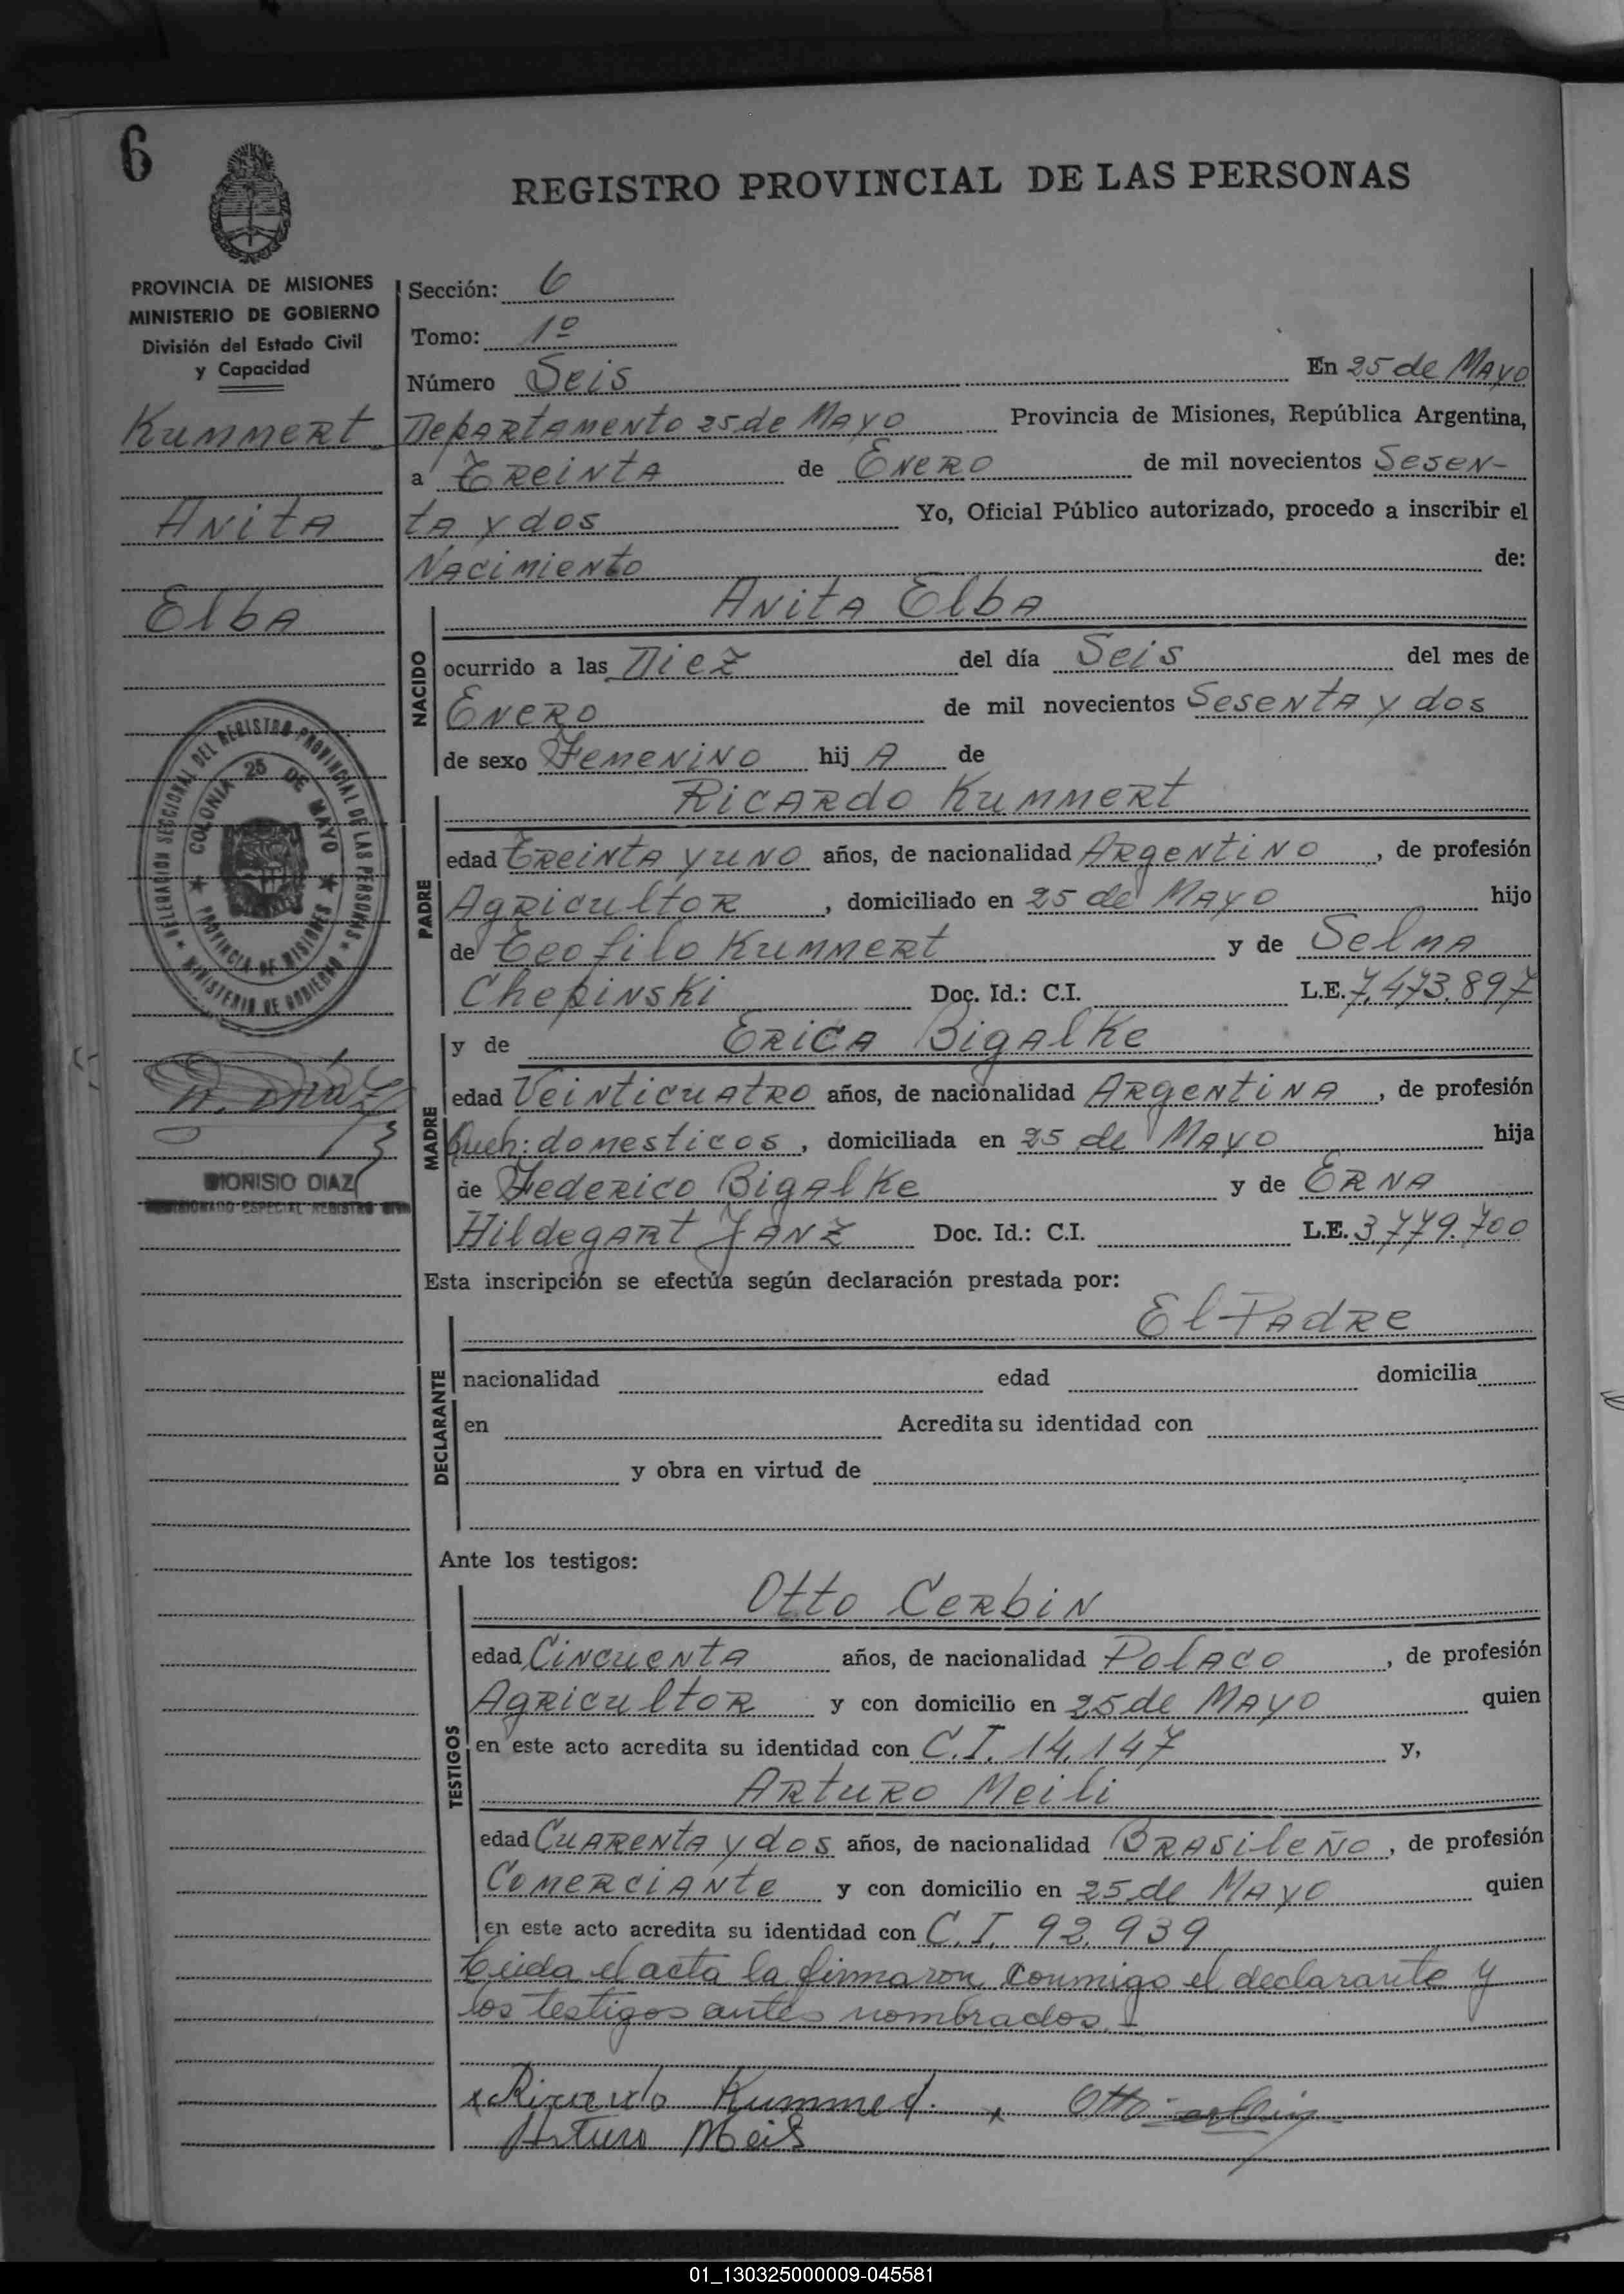 6
REGISTRO PROVINCIAL DE LAS PERSONAS
PROVINCIA DE MISIONES
MINISTERIO DE GOBIERNO
División del Estado Civil
y Capacidad
Kummert
Anita
Elba
DELEGACION SECCIONAL DEL REGISTRO PROVINCIAL DE LAS PERSONAS
★ MINISTERIO DE GOBIERNO ★
COLONIA 25 DE MAYO
★ PROVINCIA DE MISIONES ★
D. Diaz
DIONISIO DIAZ
ESPECIAL REGISTRO CIVIL
Sección: 6
Tomo: 1º
Número Seis En 25 de Mayo
Departamento 25 de Mayo Provincia de Misiones, República Argentina,
a Treinta de Enero de mil novecientos Sesen-
ta y dos Yo, Oficial Público autorizado, procedo a inscribir el
Nacimiento de:
NACIDO
Anita Elba
ocurrido a las Diez del día Seis del mes de
Enero de mil novecientos Sesenta y dos
de sexo Femenino hij A de
PADRE
Ricardo Kummert
edad Treinta y uno años, de nacionalidad Argentino, de profesión
Agricultor, domiciliado en 25 de Mayo hijo
de Teofilo Kummert y de Selma
Chepinski Doc. Id.: C.I. L.E. 7.473.897
MADRE
y de Erica Bigalke
edad Veinticuatro años, de nacionalidad Argentina, de profesión
Queh: domesticos, domiciliada en 25 de Mayo hija
de Federico Bigalke y de Erna
Hildegart Janz Doc. Id.: C.I. L.E. 3.779.700
Esta inscripción se efectúa según declaración prestada por:
DECLARANTE
El Padre
nacionalidad edad domicilia
en Acredita su identidad con
y obra en virtud de
Ante los testigos:
TESTIGOS
Otto Cerbin
edad Cincuenta años, de nacionalidad Polaco, de profesión
Agricultor y con domicilio en 25 de Mayo quien
en este acto acredita su identidad con C.I. 14.147 y,
Arturo Meili
edad Cuarenta y dos años, de nacionalidad Brasileño, de profesión
Comerciante y con domicilio en 25 de Mayo quien
en este acto acredita su identidad con C.I. 92.939
Leida el acta la firmaron conmigo el declarante y
los testigos antes nombrados.-
x Ricardo Kummert. x Otto
Arturo Meili
01_130325000009-045581